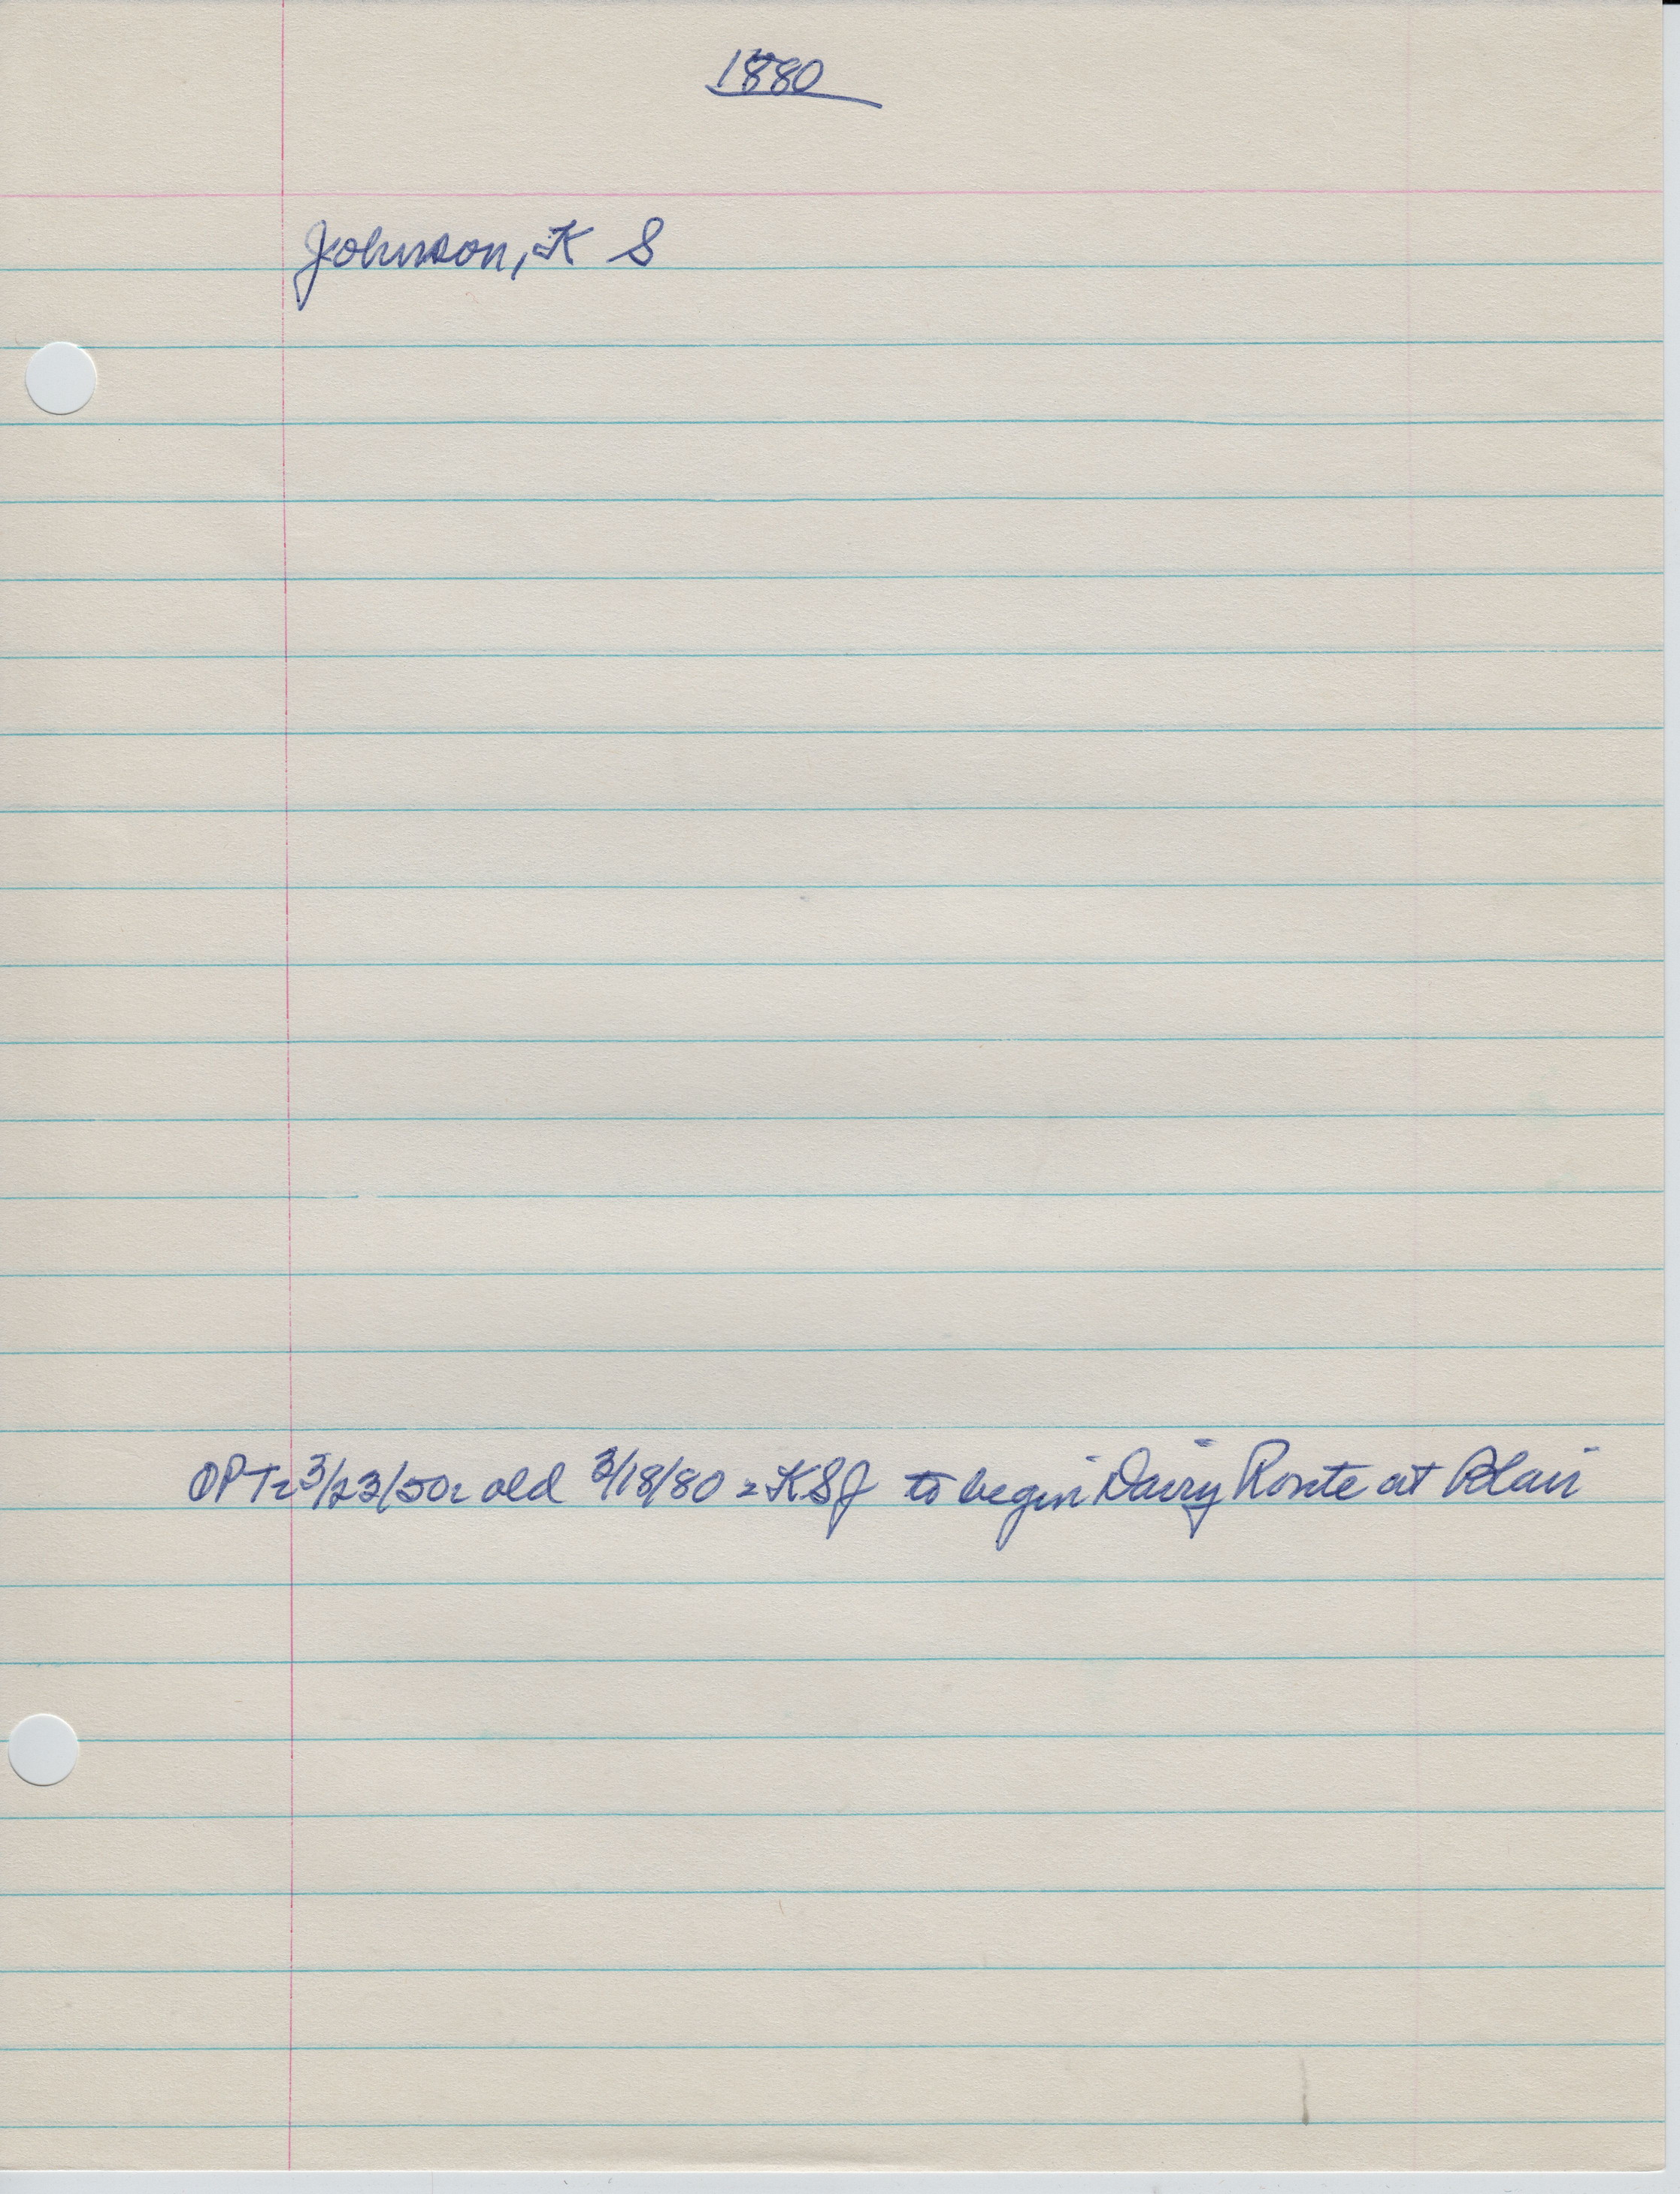 1880
Johnson, K S
OPT= 3/23/50= old 3/18/80 = KSJ to begin Dairy Route at Blair